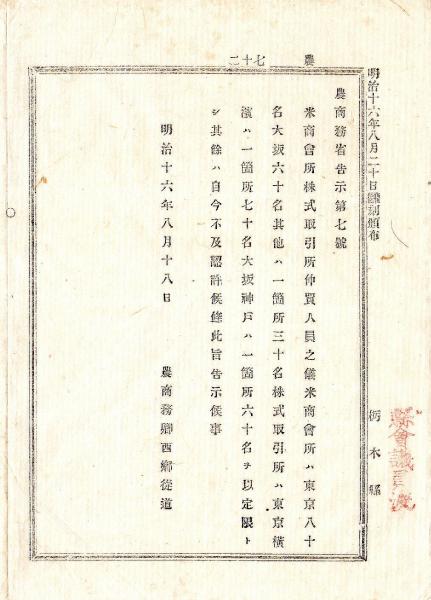 明治十六年八月二十日飜刻頒布
栃木縣
農
七十二
農商務省告示第七號
米商會所株式取引所仲買人員之儀米商會所ハ東京八十
名大坂六十名其他ハ一箇所三十名株式取引所ハ東京橫
濱ハ一箇所七十名大坂神戸ハ一箇所六十名ヲ以定限ト
シ其餘ハ自今不及認許候條此旨告示候事
明治十六年八月十八日
農商務卿西鄉從道